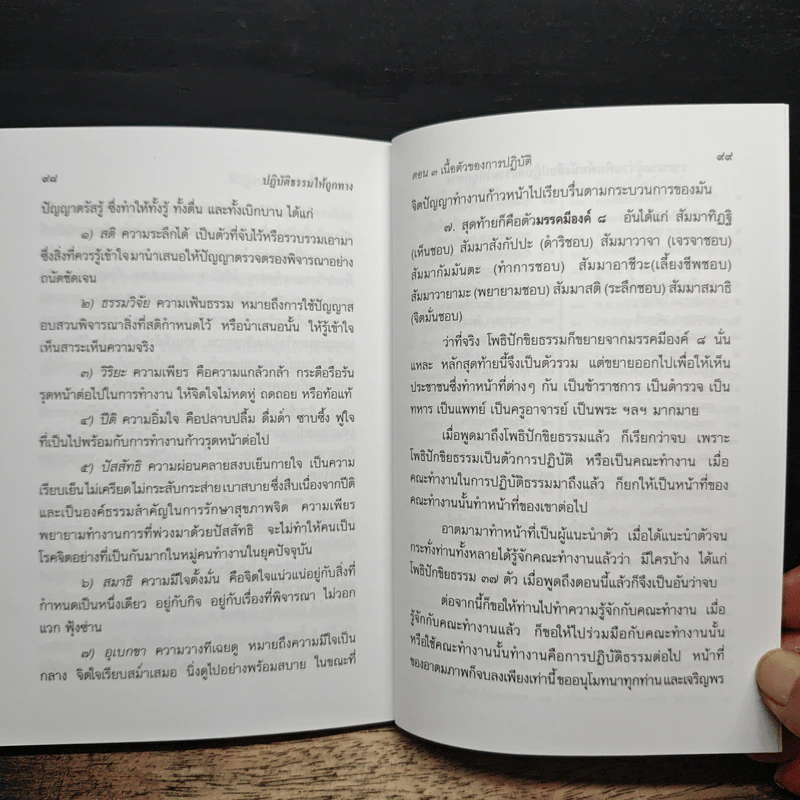 ๙๘
ปฏิบัติธรรมให้ถูกทาง
ปัญญาตรัสรู้ ซึ่งทำให้ทั้งรู้ ทั้งตื่น และทั้งเบิกบาน ได้แก่
๑) สติ ความระลึกได้ เป็นตัวที่จับไว้หรือรวบรวมเอามา
ซึ่งสิ่งที่ควรรู้เข้าใจมานำเสนอให้ปัญญาตรวจตรองพิจารณาอย่าง
ถนัดชัดเจน
๒) ธรรมวิจัย ความเฟ้นธรรม หมายถึงการใช้ปัญญาส
อบสวนพิจารณาสิ่งที่สติกำหนดไว้ หรือนำเสนอนั้น ให้รู้เข้าใจ
เห็นสาระเห็นความจริง
๓) วิริยะ ความเพียร คือความแกล้วกล้า กระตือรือร้น
รุดหน้าต่อไปในการทำงาน ให้จิตใจไม่หดหู่ ถดถอย หรือท้อแท้
๔) ปีติ ความอิ่มใจ คือปลาบปลื้ม ดื่มด่ำ ซาบซึ้ง ฟูใจ
ที่เป็นไปพร้อมกับการทำงานก้าวรุดหน้าต่อไป
๕) ปัสสัทธิ ความผ่อนคลายสงบเย็นกายใจ เป็นความ
เรียบเย็นไม่เครียดไม่กระสับกระส่ายเบาสบายซึ่งสืบเนื่องจากปีติ
และเป็นองค์ธรรมสำคัญในการรักษาสุขภาพจิต ความเพียร
พยายามทำงานการที่พ่วงมาด้วยปัสสัทธิ จะไม่ทำให้คนเป็น
โรคจิตอย่างที่เป็นกันมากในหมู่คนทำงานในยุคปัจจุบัน
๖) สมาธิ ความมีใจตั้งมั่น คือจิตใจแน่วแน่อยู่กับสิ่งที่
กำหนดเป็นหนึ่งเดียว อยู่กับกิจ อยู่กับเรื่องที่พิจารณา ไม่วอก
แวก ฟุ้งซ่าน
๗) อุเบกขา ความวางทีเฉยดู หมายถึงความมีใจเป็น
กลาง จิตใจเรียบสม่ำเสมอ นิ่งดูไปอย่างพร้อมสบาย ในขณะที่
ตอน ๓ เนื้อตัวของการปฏิบัติ
๙๙
จิตปัญญาทำงานก้าวหน้าไปเรียบรื่นตามกระบวนการของมัน
๗. สุดท้ายก็คือตัวมรรคมีองค์ ๘ อันได้แก่ สัมมาทิฏฐิ
(เห็นชอบ) สัมมาสังกัปปะ (ดำริชอบ) สัมมาวาจา (เจรจาชอบ)
สัมมากัมมันตะ (ทำการชอบ) สัมมาอาชีวะ(เลี้ยงชีพชอบ)
สัมมาวายามะ (พยายามชอบ) สัมมาสติ (ระลึกชอบ) สัมมาสมาธิ
(จิตมั่นชอบ)
ว่าที่จริง โพธิปักขิยธรรมก็ขยายจากมรรคมีองค์ ๘ นั่น
แหละ หลักสุดท้ายนี้จึงเป็นตัวรวม แต่ขยายออกไปเพื่อให้เห็น
ประชาชนซึ่งทำหน้าที่ต่างๆ กัน เป็นข้าราชการ เป็นตำรวจ เป็น
ทหาร เป็นแพทย์ เป็นครูอาจารย์ เป็นพระ ฯลฯ มากมาย
เมื่อพูดมาถึงโพธิปักขิยธรรมแล้ว ก็เรียกว่าจบ เพราะ
โพธิปักขิยธรรมเป็นตัวการปฏิบัติ หรือเป็นคณะทำงาน เมื่อ
คณะทำงานในการปฏิบัติธรรมมาถึงแล้ว ก็ยกให้เป็นหน้าที่ของ
คณะทำงานนั้นทำหน้าที่ของเขาต่อไป
อาตมามาทำหน้าที่เป็นผู้แนะนำตัว เมื่อได้แนะนำตัวจน
กระทั่งท่านทั้งหลายได้รู้จักคณะทำงานแล้วว่า มีใครบ้าง ได้แก่
โพธิปักขิยธรรม ๓๗ ตัว เมื่อพูดถึงตอนนี้แล้วก็จึงเป็นอันว่าจบ
ต่อจากนี้ก็ขอให้ท่านไปทำความรู้จักกับคณะทำงาน เมื่อ
รู้จักกับคณะทำงานแล้ว ก็ขอให้ไปร่วมมือกับคณะทำงานนั้น
หรือใช้คณะทำงานนั้นทำงานคือการปฏิบัติธรรมต่อไป หน้าที่
ของอาตมภาพก็จบลงเพียงเท่านี้ ขออนุโมทนาทุกท่าน และเจริญพร